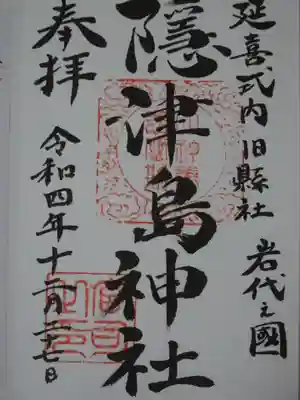 延喜式内旧縣社
岩代之國
隠津島神社
奉拝
令和四年十二月二十七日